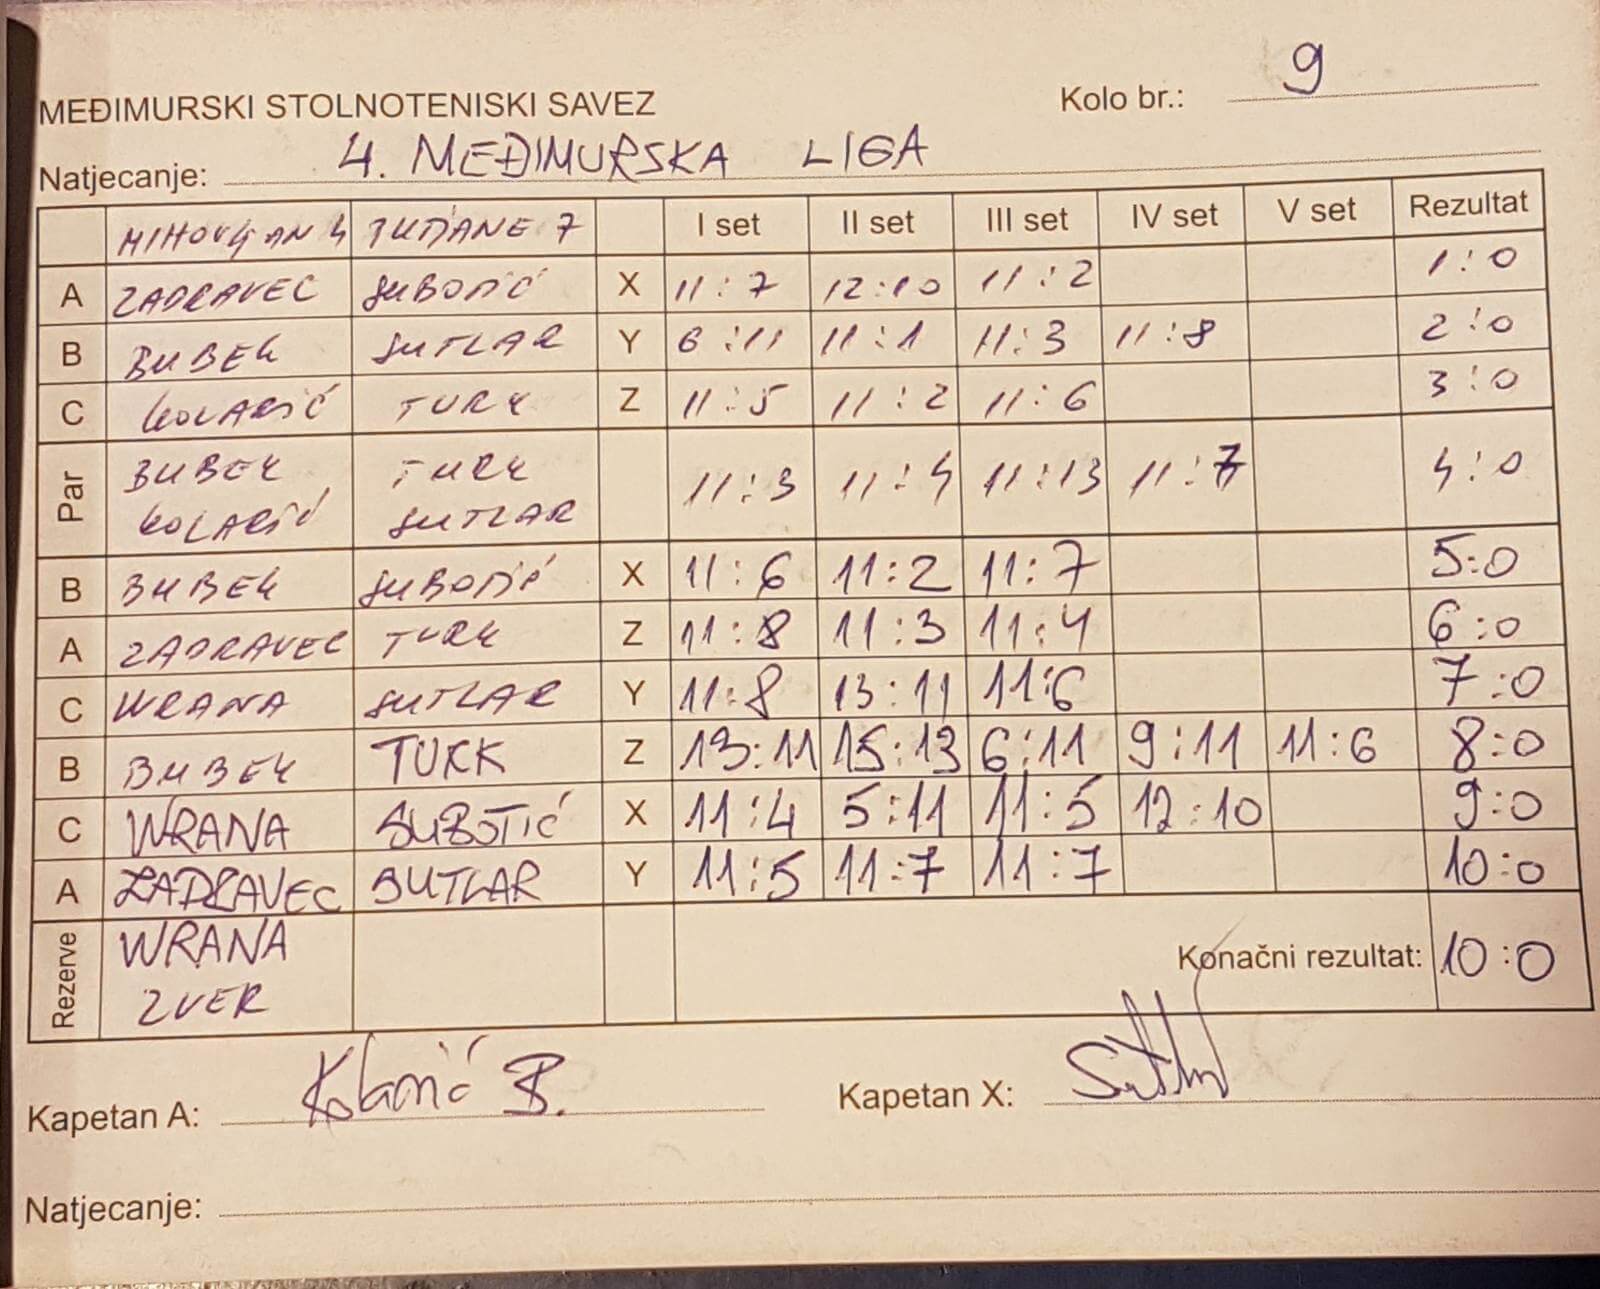 MEĐIMURSKI STOLNOTENISKI SAVEZ Kolo br.: 9
Natjecanje: 4. MEĐIMURSKA LIGA
MIHOVLJAN 4 7 I set II set III set IV set V set Rezultat
A ZADRAVEC SUBOTIĆ X 11:7 12:10 11:2 1:0
B BUBEK SUTLAR Y 6:11 11:1 11:3 11:8 2:0
C KOLARIĆ TURK Z 11:5 11:2 11:6 3:0
Par BUBEK TURK 11:3 11:4 11:13 11:7 4:0
KOLARIĆ SUTLAR
B BUBEK SUBOTIĆ X 11:6 11:2 11:7 5:0
A ZADRAVEC TURK Z 11:8 11:3 11:4 6:0
C WRANA SUTLAR Y 11:8 13:11 11:6 7:0
B BUBEK TURK Z 13:11 15:13 6:11 9:11 11:6 8:0
C WRANA SUBOTIĆ X 11:4 5:11 11:5 12:10 9:0
A ZADRAVEC SUTLAR Y 11:5 11:7 11:7 10:0
Rezerve WRANA Konačni rezultat: 10:0
ZVER
Kapetan A: Kolarić B. Kapetan X:
Natjecanje: